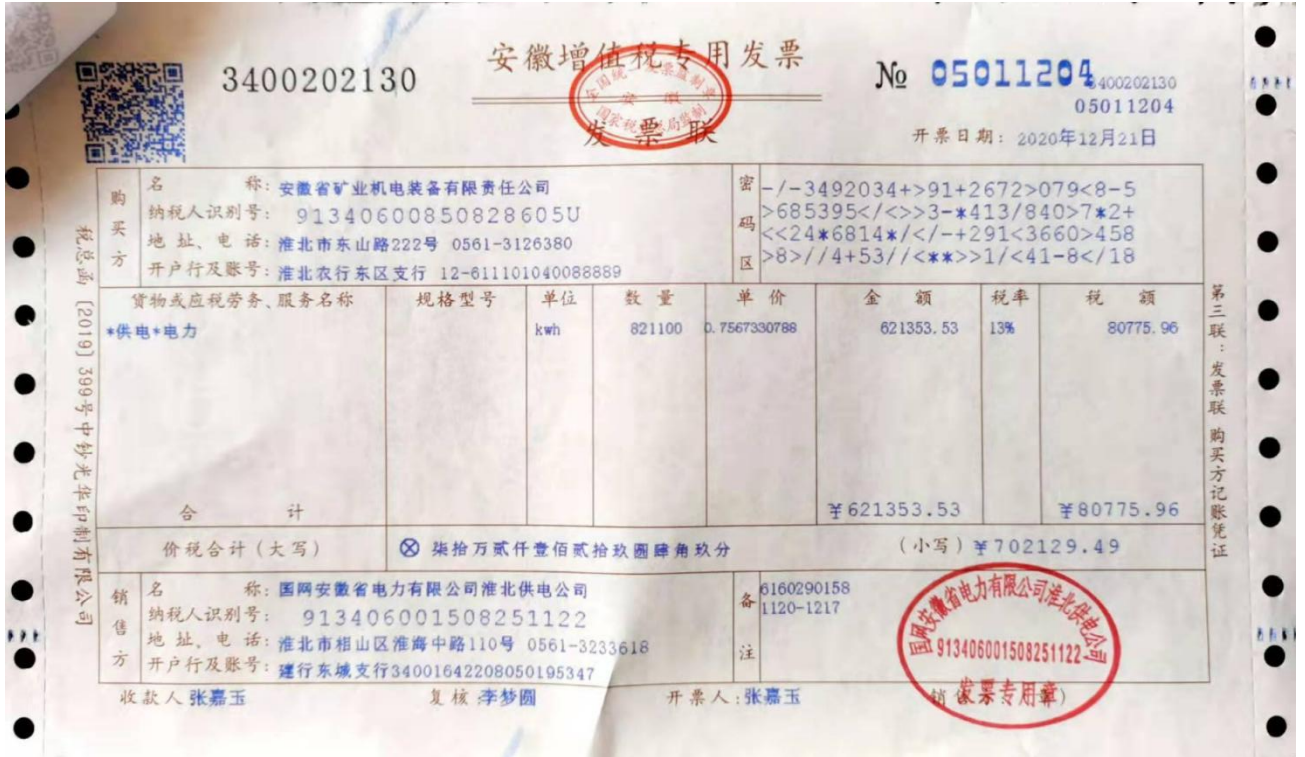 安徽增值税专用发票
3400202130
№ 05011204
3400202130
05011204
发票联
开票日期: 2020年12月21日
购买方
名 称: 安徽省矿业机电装备有限责任公司
纳税人识别号: 91340600850828605U
地 址、电 话: 淮北市东山路222号 0561-3126380
开户行及账号: 淮北农行东区支行 12-611101040088889
密码区
-/-3492034+>91+2672>079<8-5
>685395</<>>3-*413/840>7*2+
<<24*6814*/</-+291<3660>458
>8>//4+53//<**>>1/<41-8</18
货物或应税劳务、服务名称 规格型号 单位 数 量 单 价 金 额 税率 税 额
*供电*电力 kwh 821100 0.7567330788 621353.53 13% 80775.96
合 计 ¥621353.53 ¥80775.96
价税合计（大写） ⊗ 柒拾万贰仟壹佰贰拾玖圆肆角玖分 （小写）¥702129.49
销售方
名 称: 国网安徽省电力有限公司淮北供电公司
纳税人识别号: 913406001508251122
地 址、电 话: 淮北市相山区淮海中路110号 0561-3233618
开户行及账号: 建行东城支行34001642208050195347
备注
6160290158
1120-1217
国网安徽省电力有限公司淮北供电公司
913406001508251122
发票专用章
收款人 张嘉玉 复核:李梦圆 开票人:张嘉玉
税总函 [2019] 399号中钞光华印制有限公司
第三联：发票联 购买方记账凭证